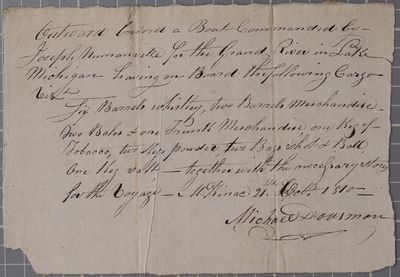 Outward bound a Boat Commanded by
Joseph for the Grand River in Lake
Michigan having on Board the following Cargo
Vizt
Six Barrels whiskey, two Barrels Merchandise
two Bales & one Trunk Merchandise one Keg of
Tobacco, two Kegs powder two Bags Shot & Ball
One Keg salt — together with the necessary Stores
for the Voyage — McKinac 21st Octr. 1810 —
Michael Dousman